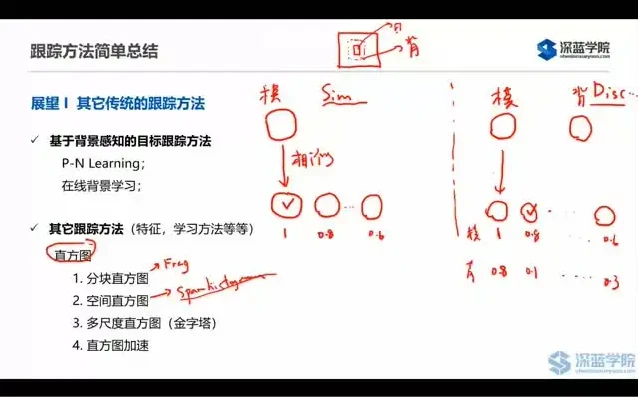 跟踪方法简单总结
深蓝学院
背
展望 I 其它传统的跟踪方法
模 Sim
模 背 Disc...
✓ 基于背景感知的目标跟踪方法
P-N Learning；
在线背景学习；
相似
✓ 其它跟踪方法（特征，学习方法等等）
1 0.8 0.6
模 1 0.8 0.6
直方图
Frag
背 0.8 0.1 ..... 0.3
1. 分块直方图
2. 空间直方图
3. 多尺度直方图（金字塔）
4. 直方图加速
深蓝学院